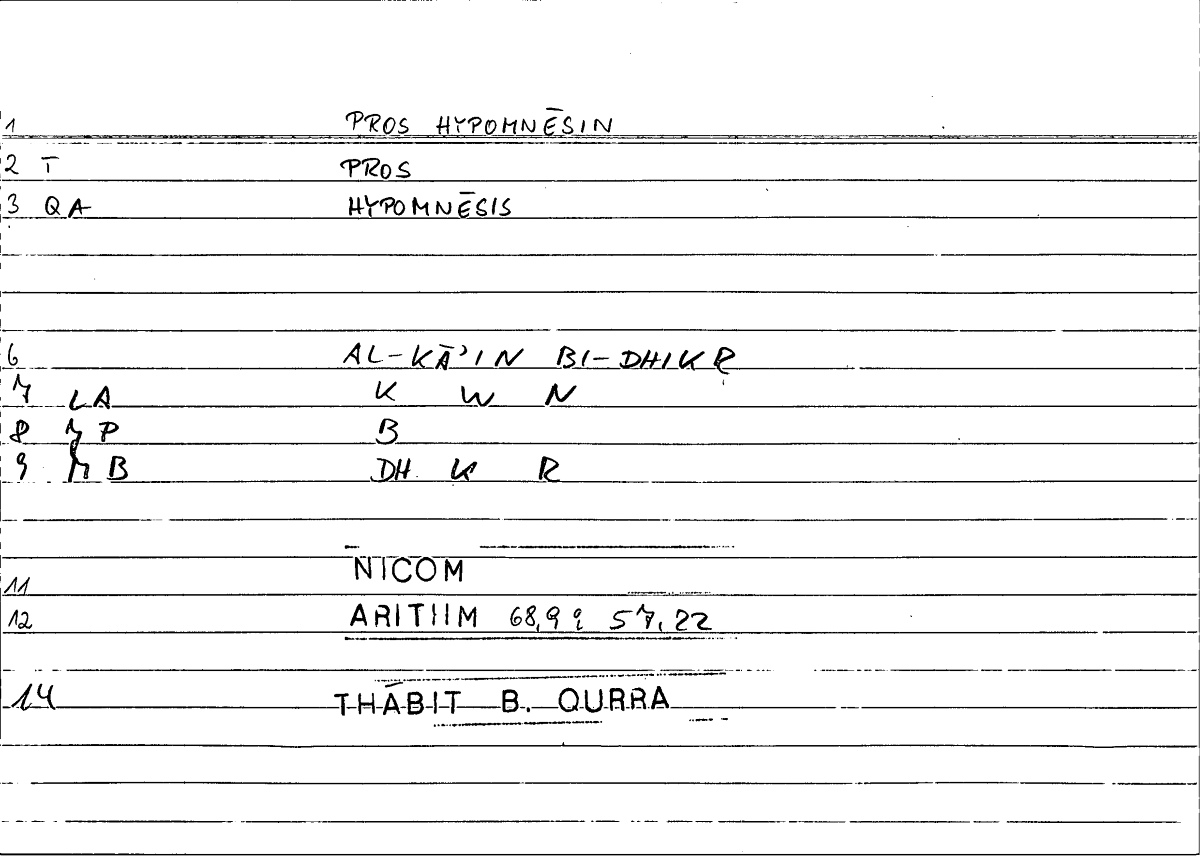 1 PROS HYPOMNĒSIN
2 T PROS
3 QA HYPOMNĒSIS
6 AL-KĀʾIN BI-DHIKR
7 LA K W N
8 B
9 DH K R
11 NICOM
12 ARITHM 68,9; 57,22
14 THĀBIT B. QURRA